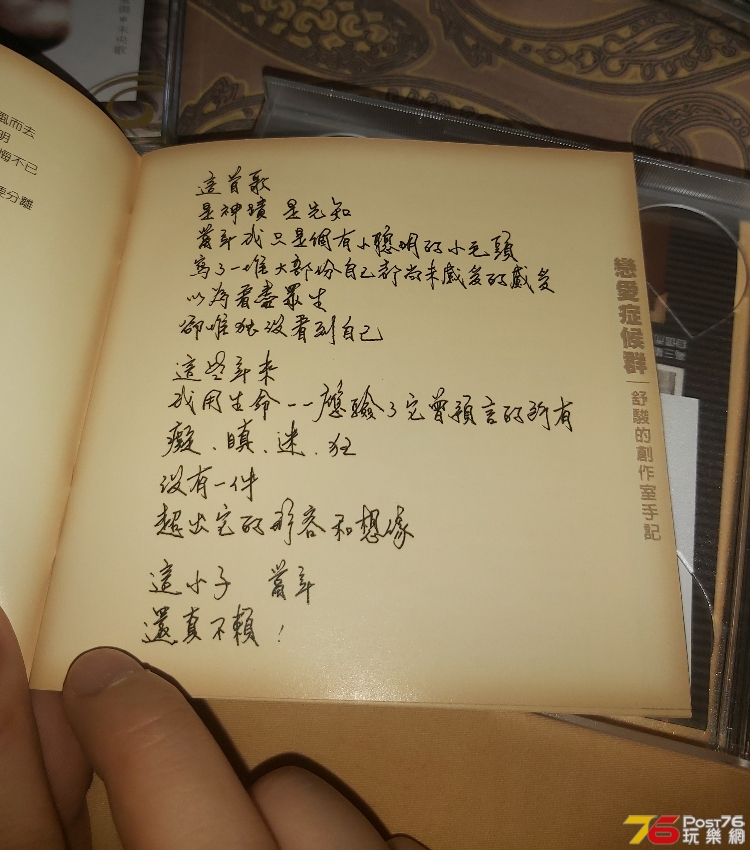 風而去
明
悔不已
要分離
這首歌
是神蹟 是先知
當年我只是個有小聰明的小毛頭
寫了一堆大部份自己都尚未感受的感受
以為看盡眾生
卻唯獨沒看到自己
這些年來
我用生命一一應驗了它曾預言的所有
癡、瞋、迷、狂
沒有一件
超出它的形容和想像
這小子 當年
還真不賴!
戀愛症候群
舒駿的創作室手記
Post76
玩樂網